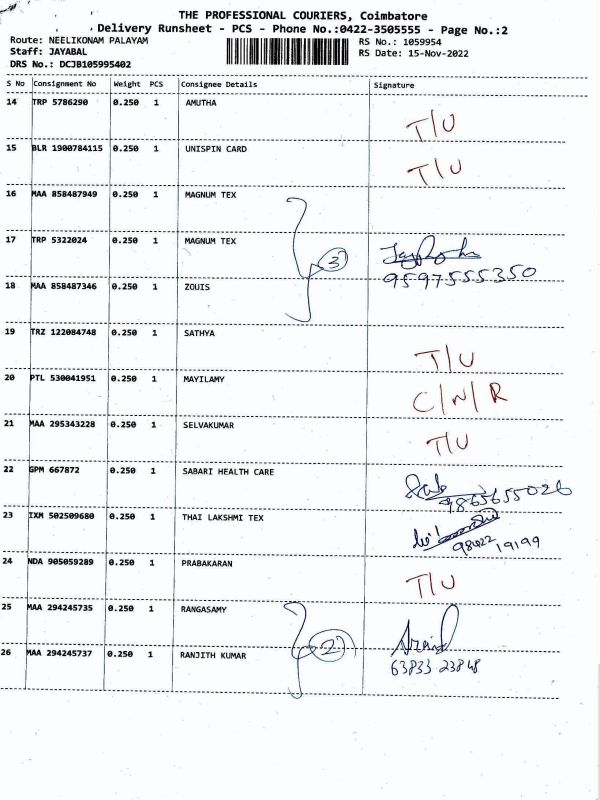 THE PROFESSIONAL COURIERS, Coimbatore
Delivery Runsheet - PCS - Phone No.:0422-3505555 - Page No.:2
Route: NEELIKONAM PALAYAM RS No.: 1059954
Staff: JAYABAL RS Date: 15-Nov-2022
DRS No.: DCJB105995402
S No Consignment No Weight PCS Consignee Details Signature
14 TRP 5786290 0.250 1 AMUTHA T/U
15 BLR 1900784115 0.250 1 UNISPIN CARD T/U
16 MAA 858487949 0.250 1 MAGNUM TEX
17 TRP 5322024 0.250 1 MAGNUM TEX 3
9597555350
18 MAA 858487346 0.250 1 ZOUIS
19 TRZ 122084748 0.250 1 SATHYA T/U
20 PTL 530041951 0.250 1 MAYILAMY C/N/R
21 MAA 295343228 0.250 1 SELVAKUMAR T/U
22 GPM 667872 0.250 1 SABARI HEALTH CARE
9865655026
23 IXM 502509680 0.250 1 THAI LAKSHMI TEX
98422 19199
24 NDA 905059289 0.250 1 PRABAKARAN T/U
25 MAA 294245735 0.250 1 RANGASAMY
26 MAA 294245737 0.250 1 RANJITH KUMAR 2
63833 23848